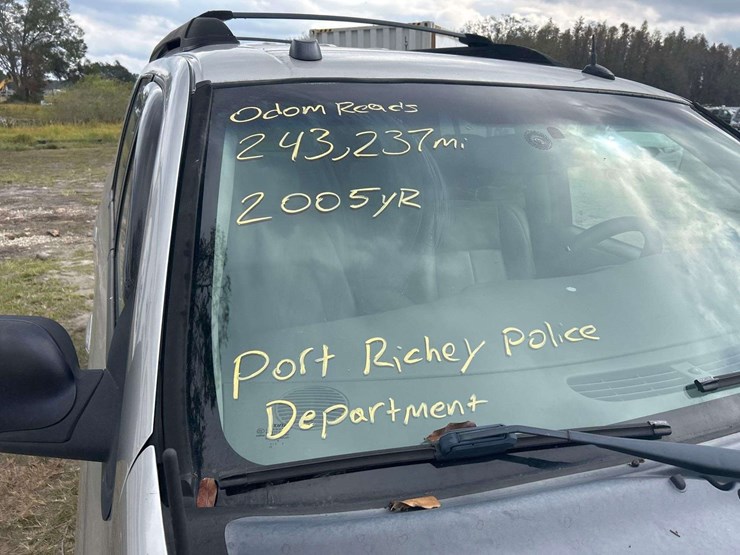 Odom Reads
243,237mi
2005yR
Port Richey Police
Department